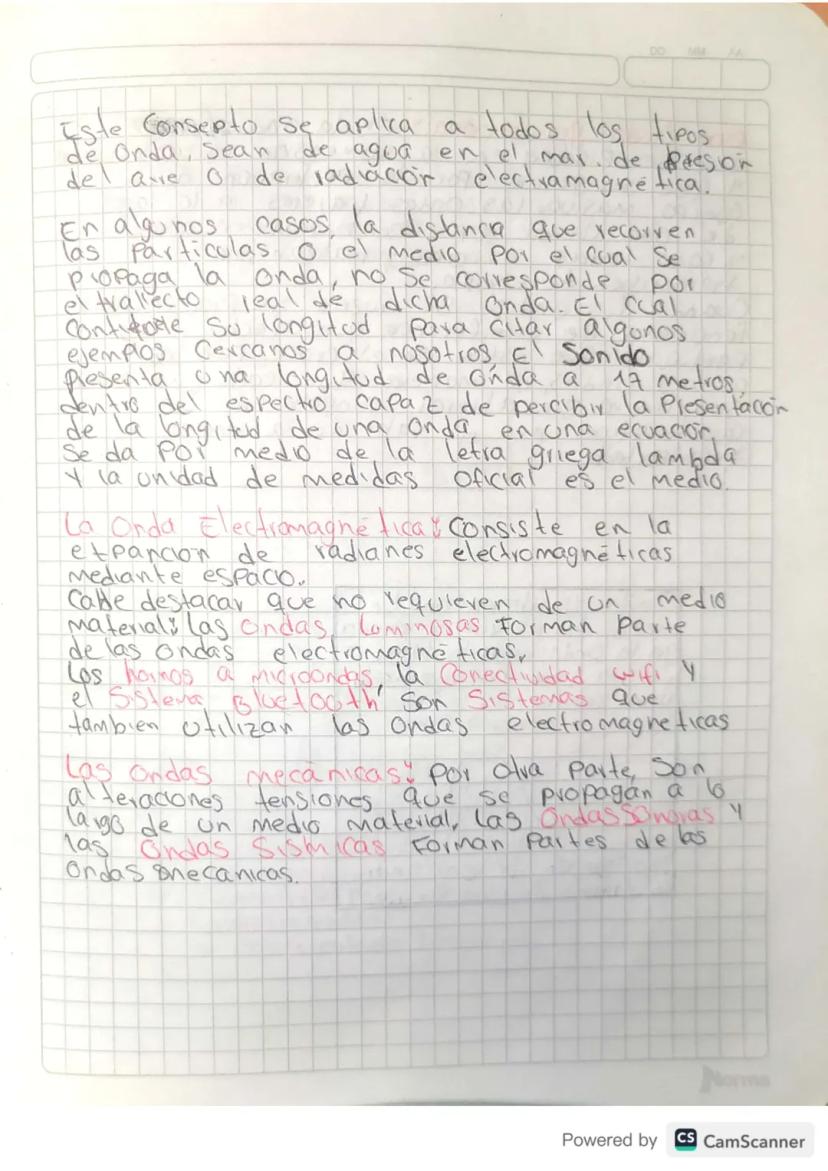 DD MM AA
Este Consepto se aplica a todos los tipos
de Onda, sean de agua en el mar. de presor
del aire o de radiacior electramagnética.
En algunos casos, la distanca que recorren
las Particulas o el medio por el cual se
propaga la onda, no se corresponde por
el trallecto real de dicha Onda. El ccal
su longitud para citar algonos
ejemplos Cercanos a nosotros El Sonido
Presenta una longitud de onda a 17 metros
dentro del espectro capaz de percibir la Presentación
de la longitud de una onda en una ecuacior
se da por medio de la letra griega lambda
y la unidad de medidas oficial es el medio.
La Onda Electromagnética: consiste en la
expancion de radianes electromagnéticas
mediante espacio.
Cabe destacar que no requieren de un medio
material: las ondas luminosas forman parte
de las ondas electromagnéticas,
los hornos a microondas, la Conectividad wifi y
el Sistema Bluetooth, son Sistemas que
tambien utilizan las ondas electromagneticas
Las ondas mecánicas: por otra parte, son
alteraciones tensiones que se propagan a lo
largo de un medio material, las Ondas Sonoras y
las Ondas Sismicas Forman Partes de las
Ondas mecanicas.
Norma
Powered by CS CamScanner